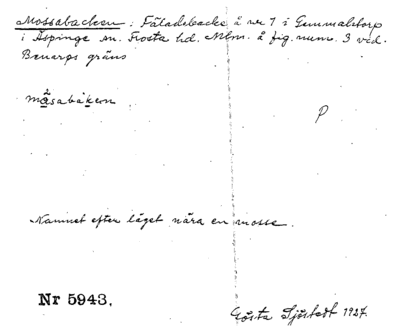 Mossabacken: Fäladsbacke å nr 7 i Gummalstorp
i Äspinge sn. Frosta hd. Mlm. å fig. num. 3 vid
gräns
P
Namnet efter läget nära en mosse.
Nr 5943.
Gösta Sjöstedt 1927.